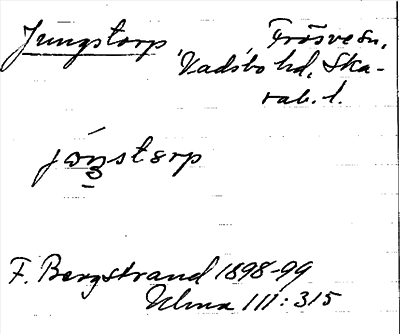 Jungstorp Frösve sn,
Vadsbo hd, Ska-
rab. l.
jɷŋstɷrp
F. Bergstrand 1898-99
Ulma 111:315